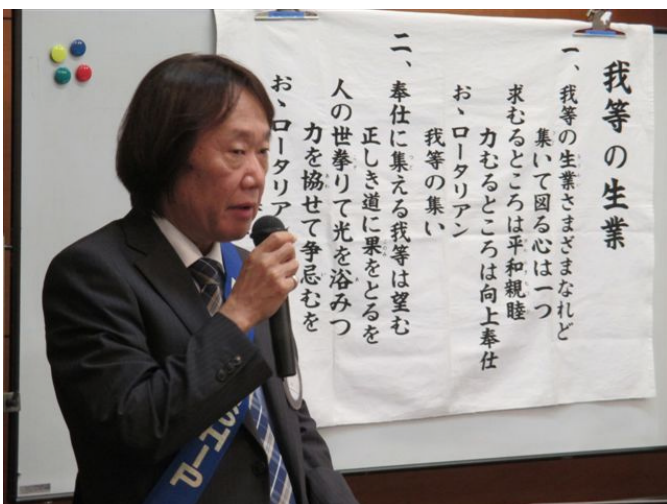 我等の生業
一、我等の生業さまざまなれど
集いて図る心は一つ
求むるところは平和親睦
力むるところは向上奉仕
お、ロータリアン
我等の集い
二、奉仕に集える我等は望む
正しき道に果をとるを
人の世挙りて光を浴みつ
力を協せて争忌むを
お、ロータリア